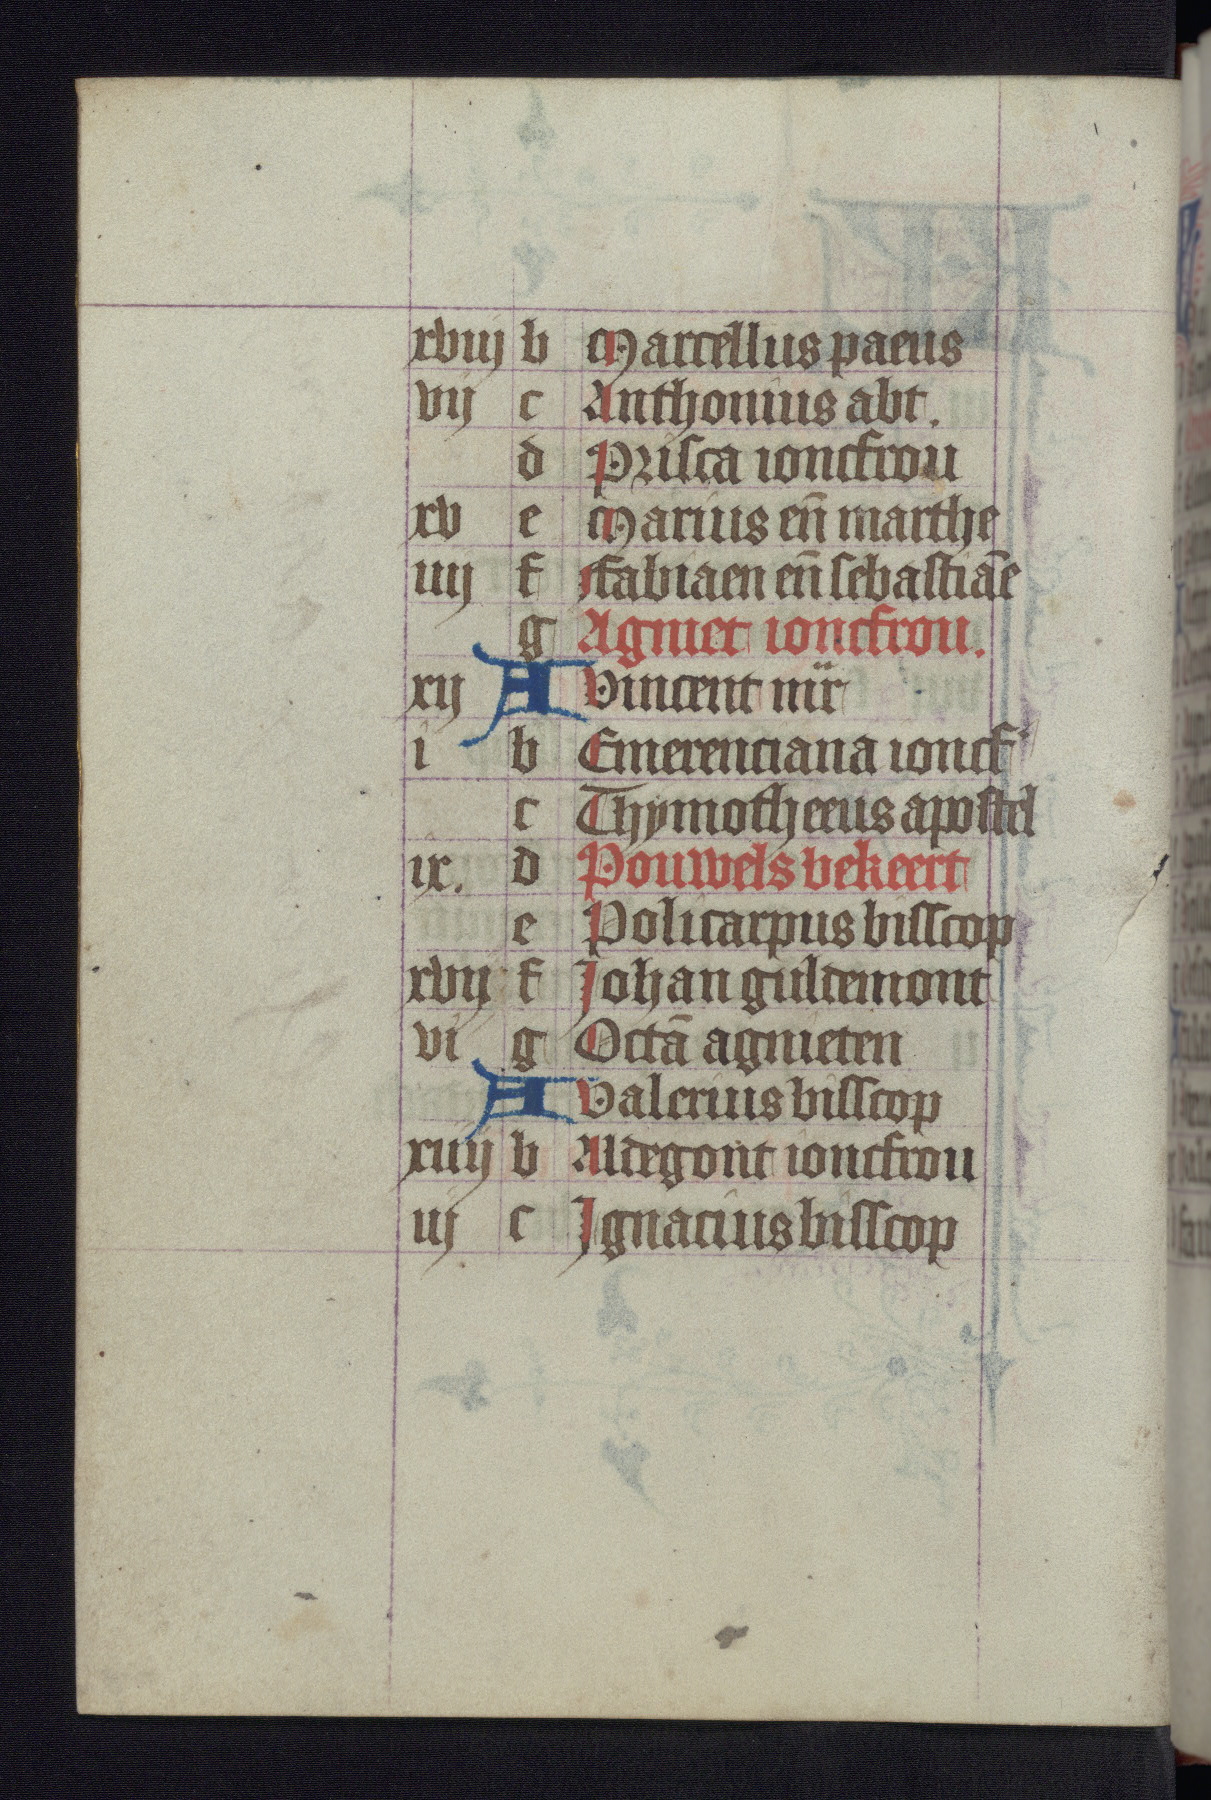 xviij b Marcellus paeus
vij c Anthonius abt.
d Prisca ioncfrou
xv e Marius en̄ marthe
iiij f Fabiaen en̄ sebastiāe
g Agniet ioncfrou.
xij A Vincent mr̄
i b Emerenciana ioncf
c Thymotheeus apostel
ix. d Pouwels bekeert
e Policarpus bisscop
xvij f Johan guldemont
vi g Octā agnieten
A Valerius bisscop
xiiij b Aldegont ioncfrou
iij c Ignacius bisscop